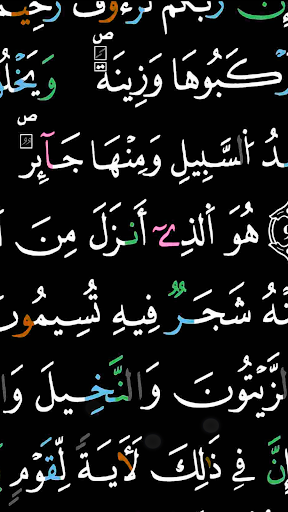 رَبَّكُمْ لَرَءُوفٌ رَّحِيمٌ
لِتَرْكَبُوهَا وَزِينَةً ۖ وَيَخْلُقُ
قَصْدُ اَ۬لسَّبِيلِ وَمِنْهَا جَآئِرٌ ۖ
هُوَ اَ۬لذِےٓ أَنزَلَ مِنَ
شَجَرٌ فِيهِ تُسِيمُونَ
وَالزَّيْتُونَ وَالنَّخِيلَ وَا
إِنَّ فِے ذَٰلِكَ لَأٓيَةً لِّقَوْمٍ